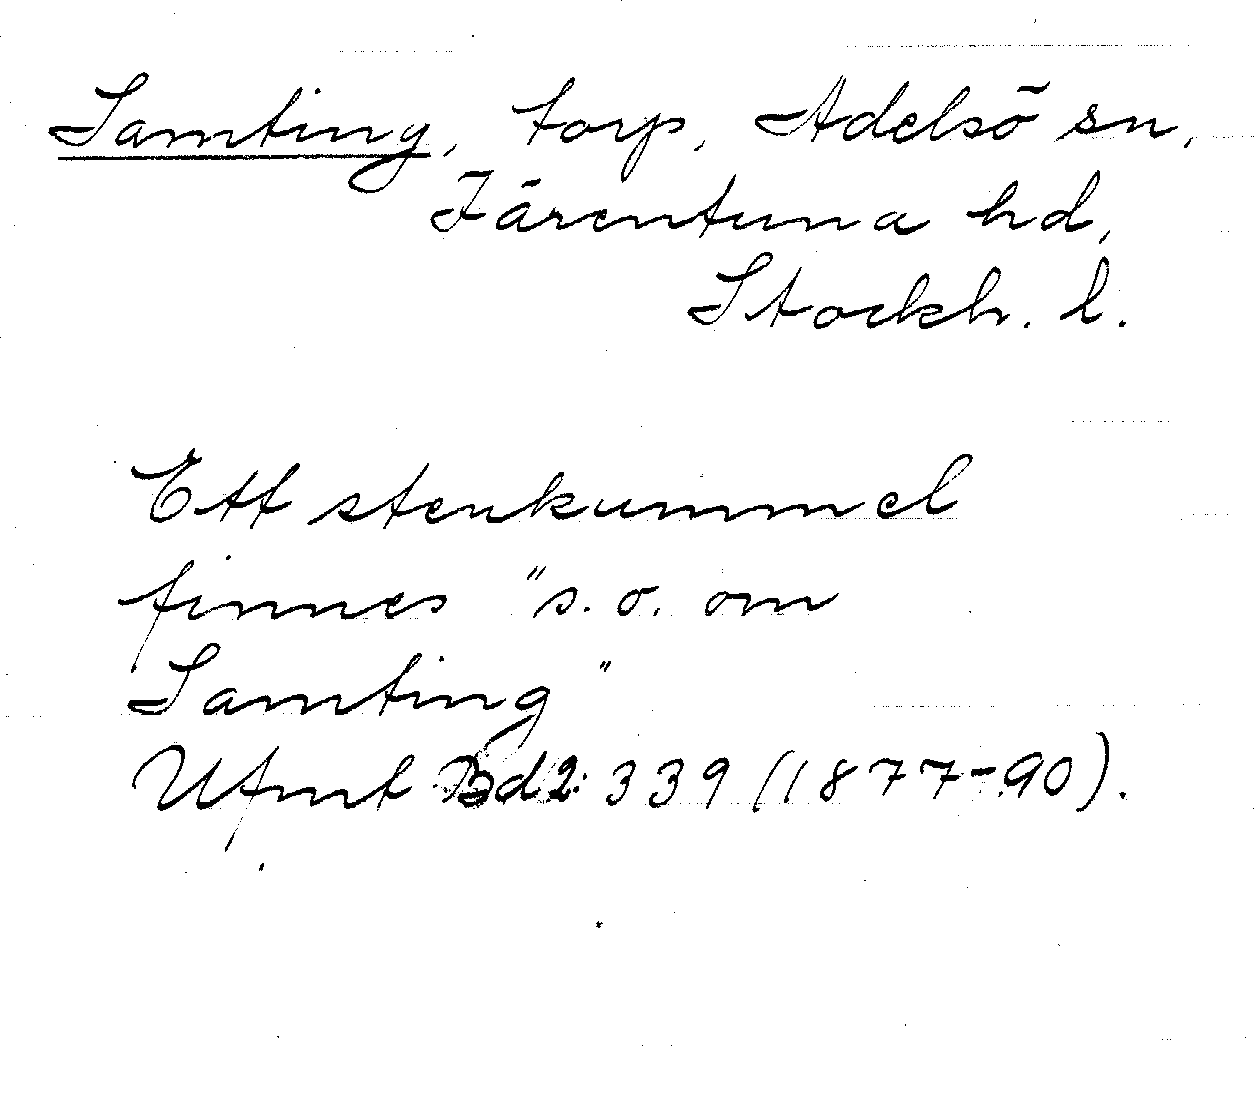 Samting, torp, Adelsö sn,
Färentuna hd,
Stockh. l.
Ett stenkummel
finnes "s. o. om
Samting"
Ufmt Bd 2: 339 (1877-90).